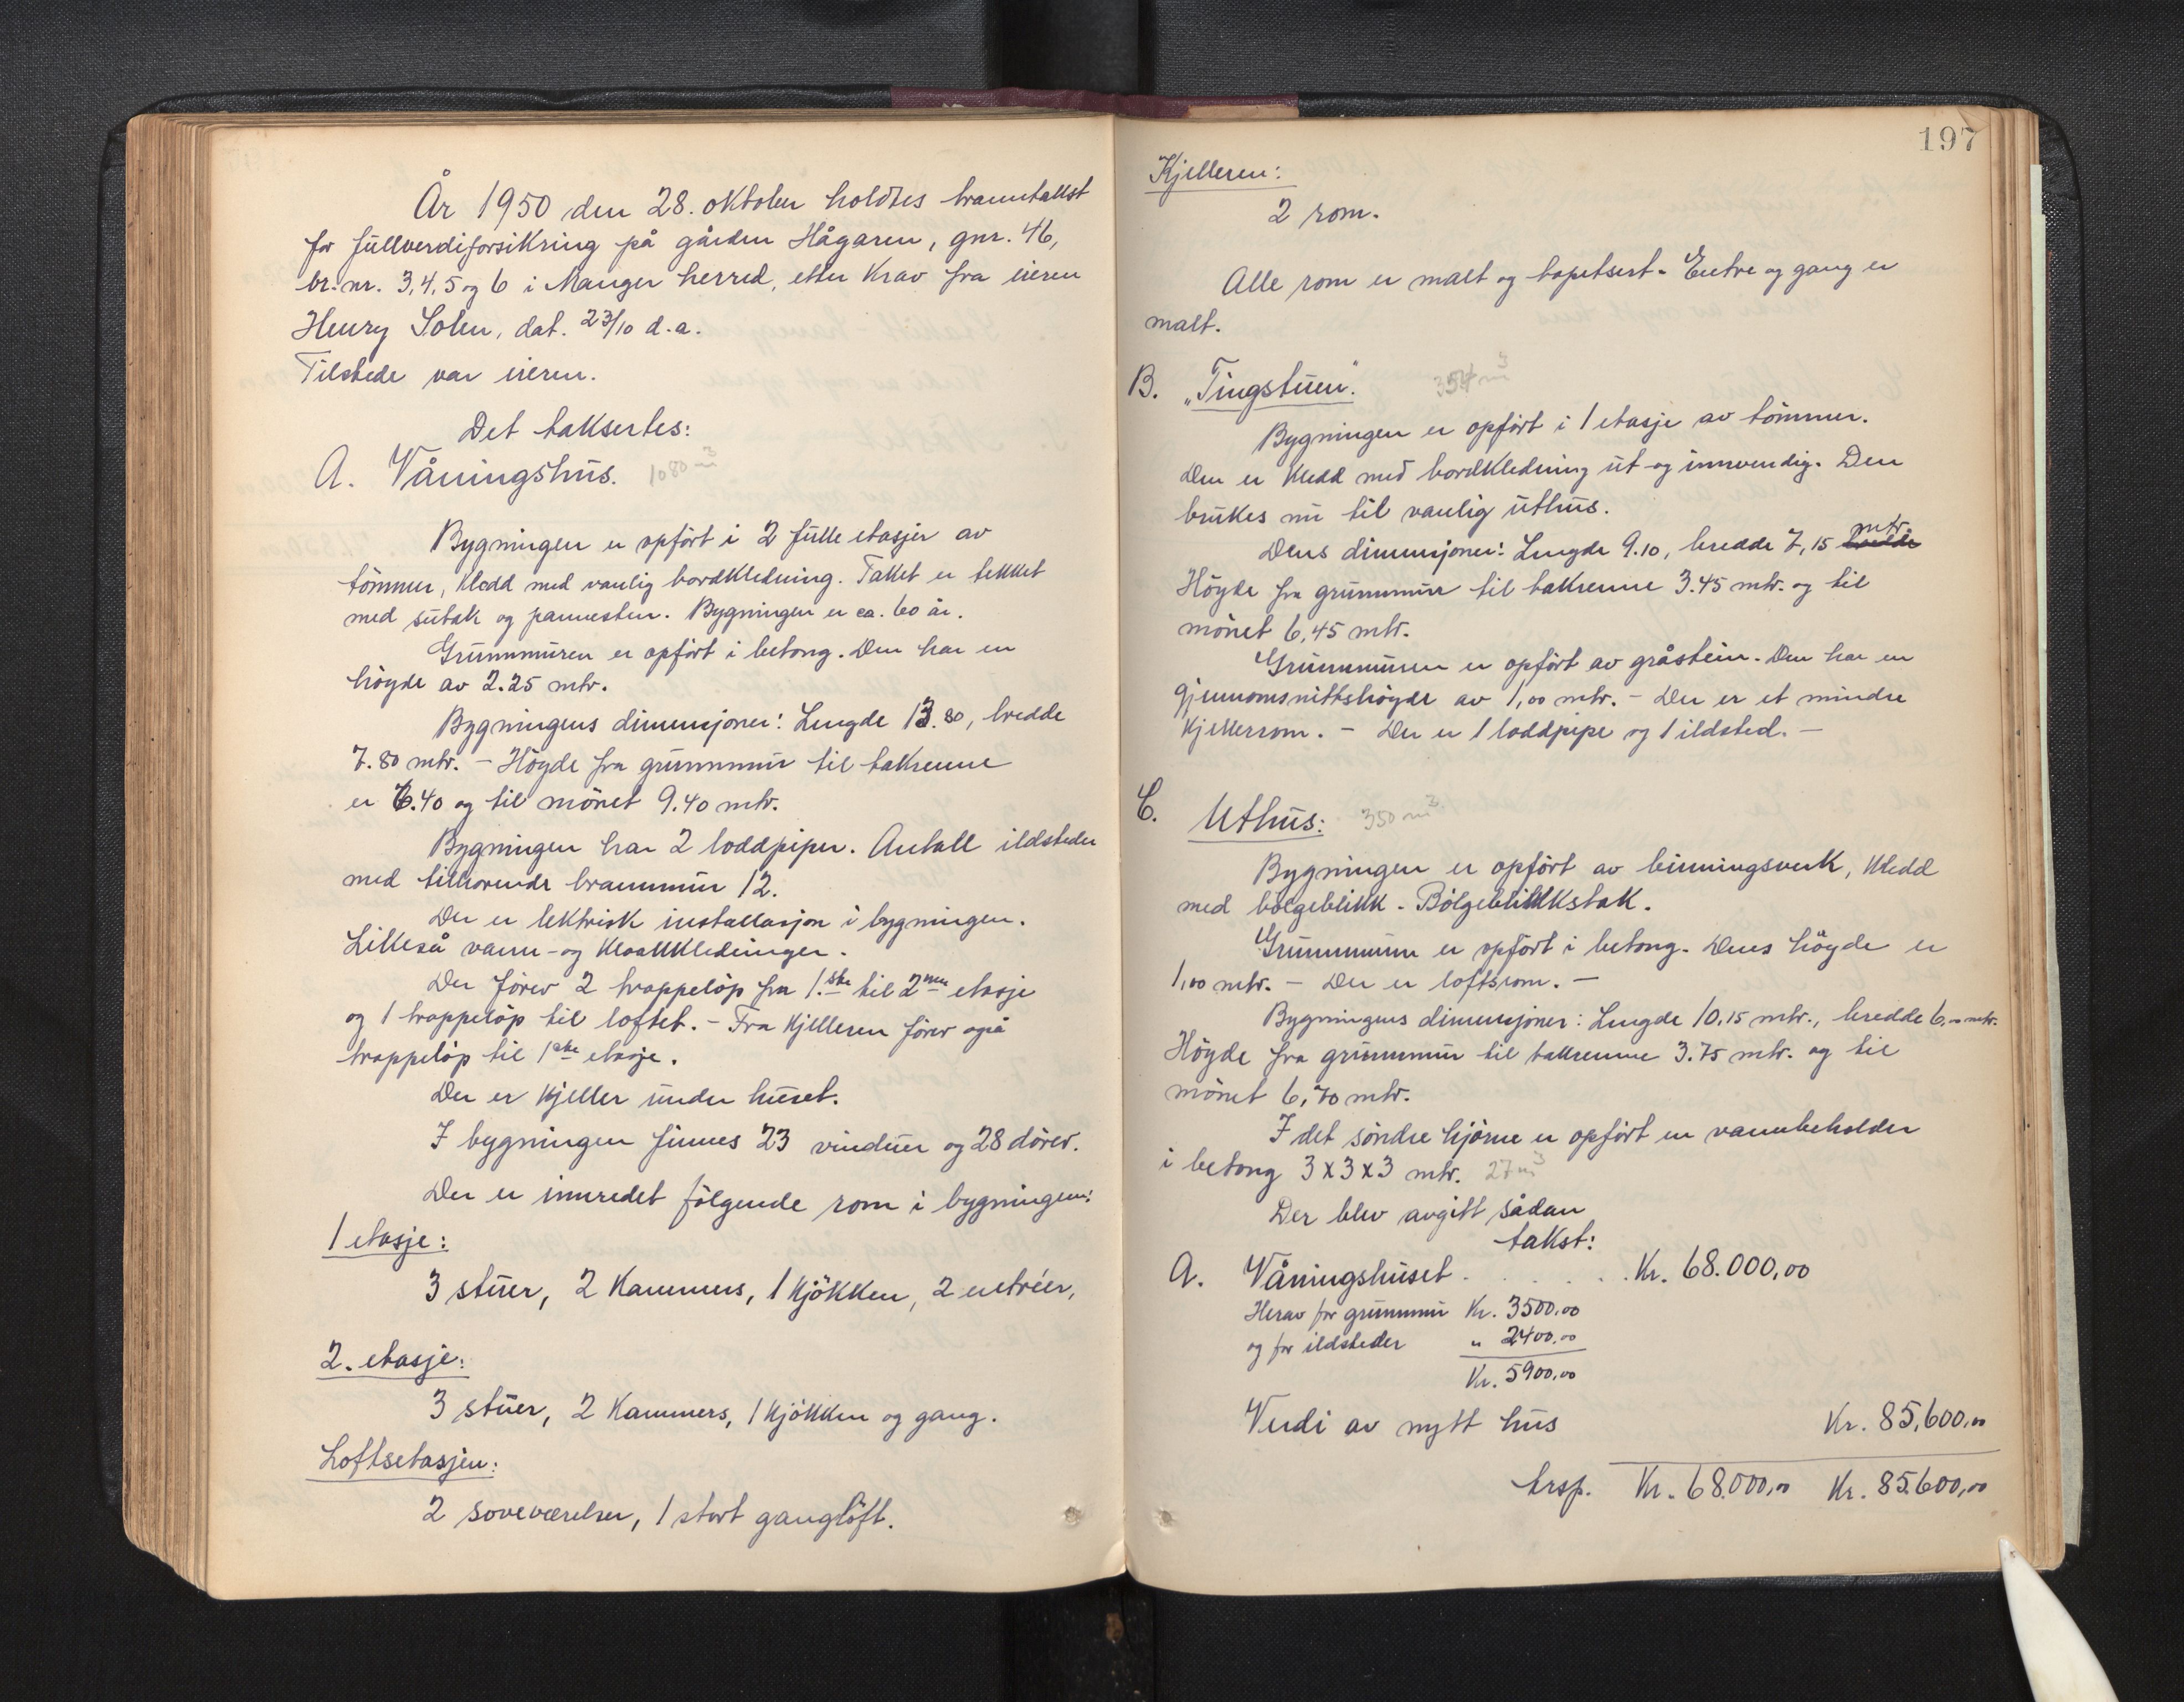 År 1950 den 28. oktober holdtes branntakst
for fullverdiforsikring på gården Hågaren, gnr. 46,
br.nr. 3, 4, 5 og 6 i Manger herred, etter krav fra eieren
Henry Solen, dat. 23/10 d.a.
Tilstede var eieren.
Det taksertes:
A. Våningshus. 1080 m3
Bygningen er opført i 2 fulle etasjer av
tømmer, kledd med vanlig bordkledning. Taket er tekket
med sutak og pannesten. Bygningen er ca. 60 år.
Grunnmuren er opført i betong. Den har en
høyde av 2.25 mtr.
Bygningens dimensjoner: Lengde 13.80, bredde
7.80 mtr. - Høyde fra grunnmur til takrenne
er 6.40 og til mønet 9.40 mtr.
Bygningen har 2 loddpiper. Antall ildsteder
med tilhørende brannmur 12.
Der er lektrisk installasjon i bygningen.
Likeså vann- og kloakkledninger.
Der fører 2 trappeløp fra 1.ste til 2nen etasje
og 1 trappeløp til loftet. - Fra kjelleren fører også
trappeløp til 1ste etasje.
Der er kjeller under huset.
I bygningen finnes 23 vinduer og 28 dører.
Der er innredet følgende rom i bygningen:
1 etasje:
3 stuer, 2 kammers, 1 kjøkken, 2 entréer,
2. etasje:
3 stuer, 2 kammers, 1 kjøkken og gang.
Loftsetasjen:
2 soveværelser, 1 stort gangloft.
197
Kjelleren:
2 rom.
Alle rom er malt og tapetsert. Entre og gang er
malt.
B. „Tingstuen". 354 m3
Bygningen er opført i 1 etasje av tømmer.
Den er kledd med bordkledning ut- og innvendig. Den
brukes nu til vanlig uthus.
Dens dimensjoner: Lengde 9.10, bredde 7,15 mtr.
Høyde fra grunnmur til takrenne 3.45 mtr. og til
mønet 6,45 mtr.
Grunnmuren er opført av gråstein. Den har en
gjennomsnittshøyde av 1,00 mtr. - Der er et mindre
kjellerrom. - Der er 1 loddpipe og 1 ildsted. -
C. Uthus: 350 m3
Bygningen er opført av binningsverk, kledd
med bølgeblikk - Bølgeblikkstak.
Grunnmuren er opført i betong. Dens høyde er
1,00 mtr. - Der er loftsrom. -
Bygningens dimensjoner: Lengde 10,15 mtr., bredde 6,00 mtr.
Høyde fra grunnmur til takrenne 3.75 mtr. og til
mønet 6,70 mtr.
I det søndre hjørne er opført en vannbeholder
i betong 3x3x3 mtr. 27 m3
Der blev avgitt sådan
takst:
A. Våningshuset . . . . . . Kr. 68.000,00
Herav for grunnmur Kr. 3500,00
og for ildsteder " 2400,00
Kr. 5900,00
Verdi av nytt hus Kr. 85,600,00
trsp. Kr. 68.000,00 Kr. 85.600,00